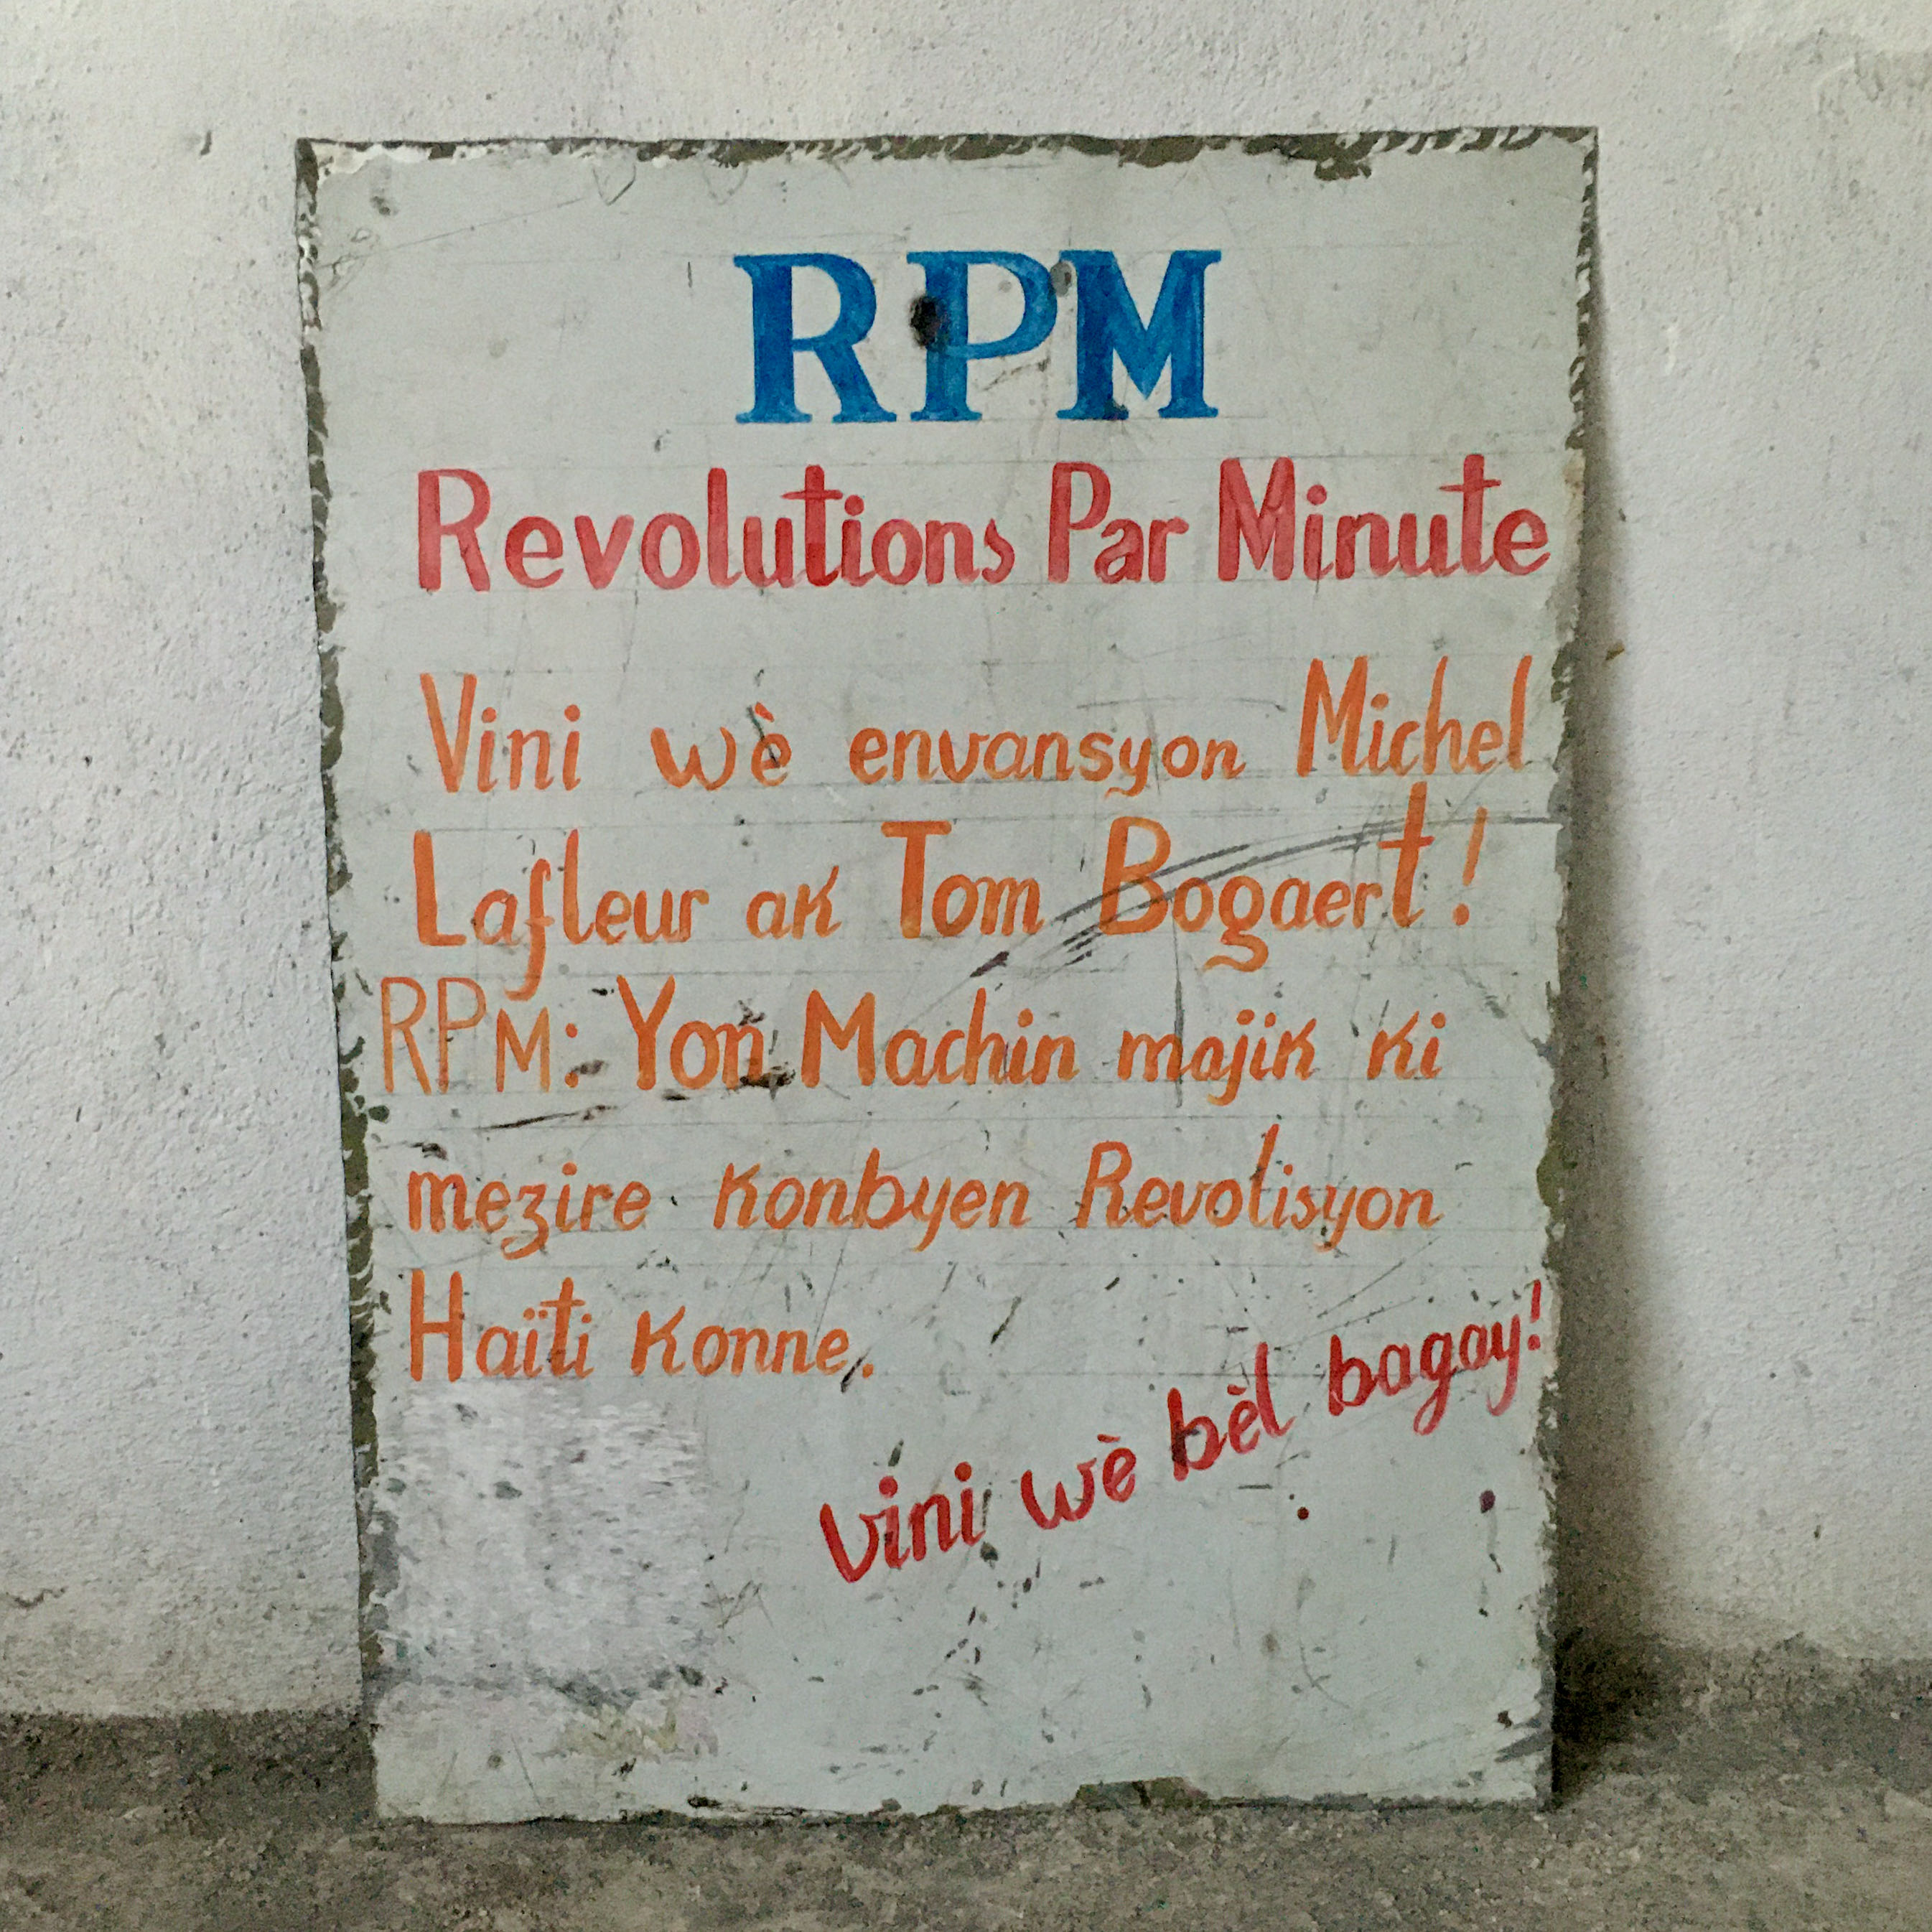 RPM
Revolutions Par Minute
Vini wè envansyon Michel
Lafleur ak Tom Bogaert!
RPM: Yon Machin majik ki
mezire konbyen Revolisyon
Haïti konne.
vini wè bèl bagay!